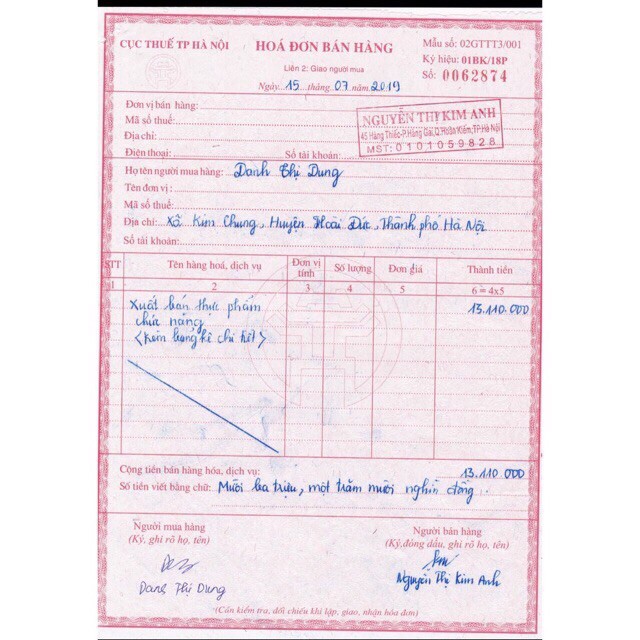 CỤC THUẾ TP HÀ NỘI
HOÁ ĐƠN BÁN HÀNG
Mẫu số: 02GTTT3/001
Liên 2: Giao người mua
Ký hiệu: 01BK/18P
Ngày 15 tháng 07 năm 2019
Số: 0062874
Đơn vị bán hàng:
Mã số thuế:
Địa chỉ:
Điện thoại: Số tài khoản:
NGUYỄN THỊ KIM ANH
45 Hàng Thiếc-P.Hàng Gai,Q.Hoàn Kiếm,TP.Hà Nội
MST: 0101059828
Họ tên người mua hàng: Danh Thị Dung
Tên đơn vị:
Mã số thuế:
Địa chỉ: Xã Kim Chung, Huyện Hoài Đức, Thành phố Hà Nội
Số tài khoản:
STT Tên hàng hoá, dịch vụ Đơn vị tính Số lượng Đơn giá Thành tiền
1 2 3 4 5 6 = 4x5
Xuất bán thực phẩm 13.110.000
chức năng
<Kèm bảng kê chi tiết>
Cộng tiền bán hàng hóa, dịch vụ: 13.110.000
Số tiền viết bằng chữ: Mười ba triệu, một trăm mười nghìn đồng
Người mua hàng Người bán hàng
(Ký, ghi rõ họ, tên) (Ký,đóng dấu, ghi rõ họ, tên)
Danh Thị Dung Nguyễn Thị Kim Anh
(Cần kiểm tra, đối chiếu khi lập, giao, nhận hóa đơn)